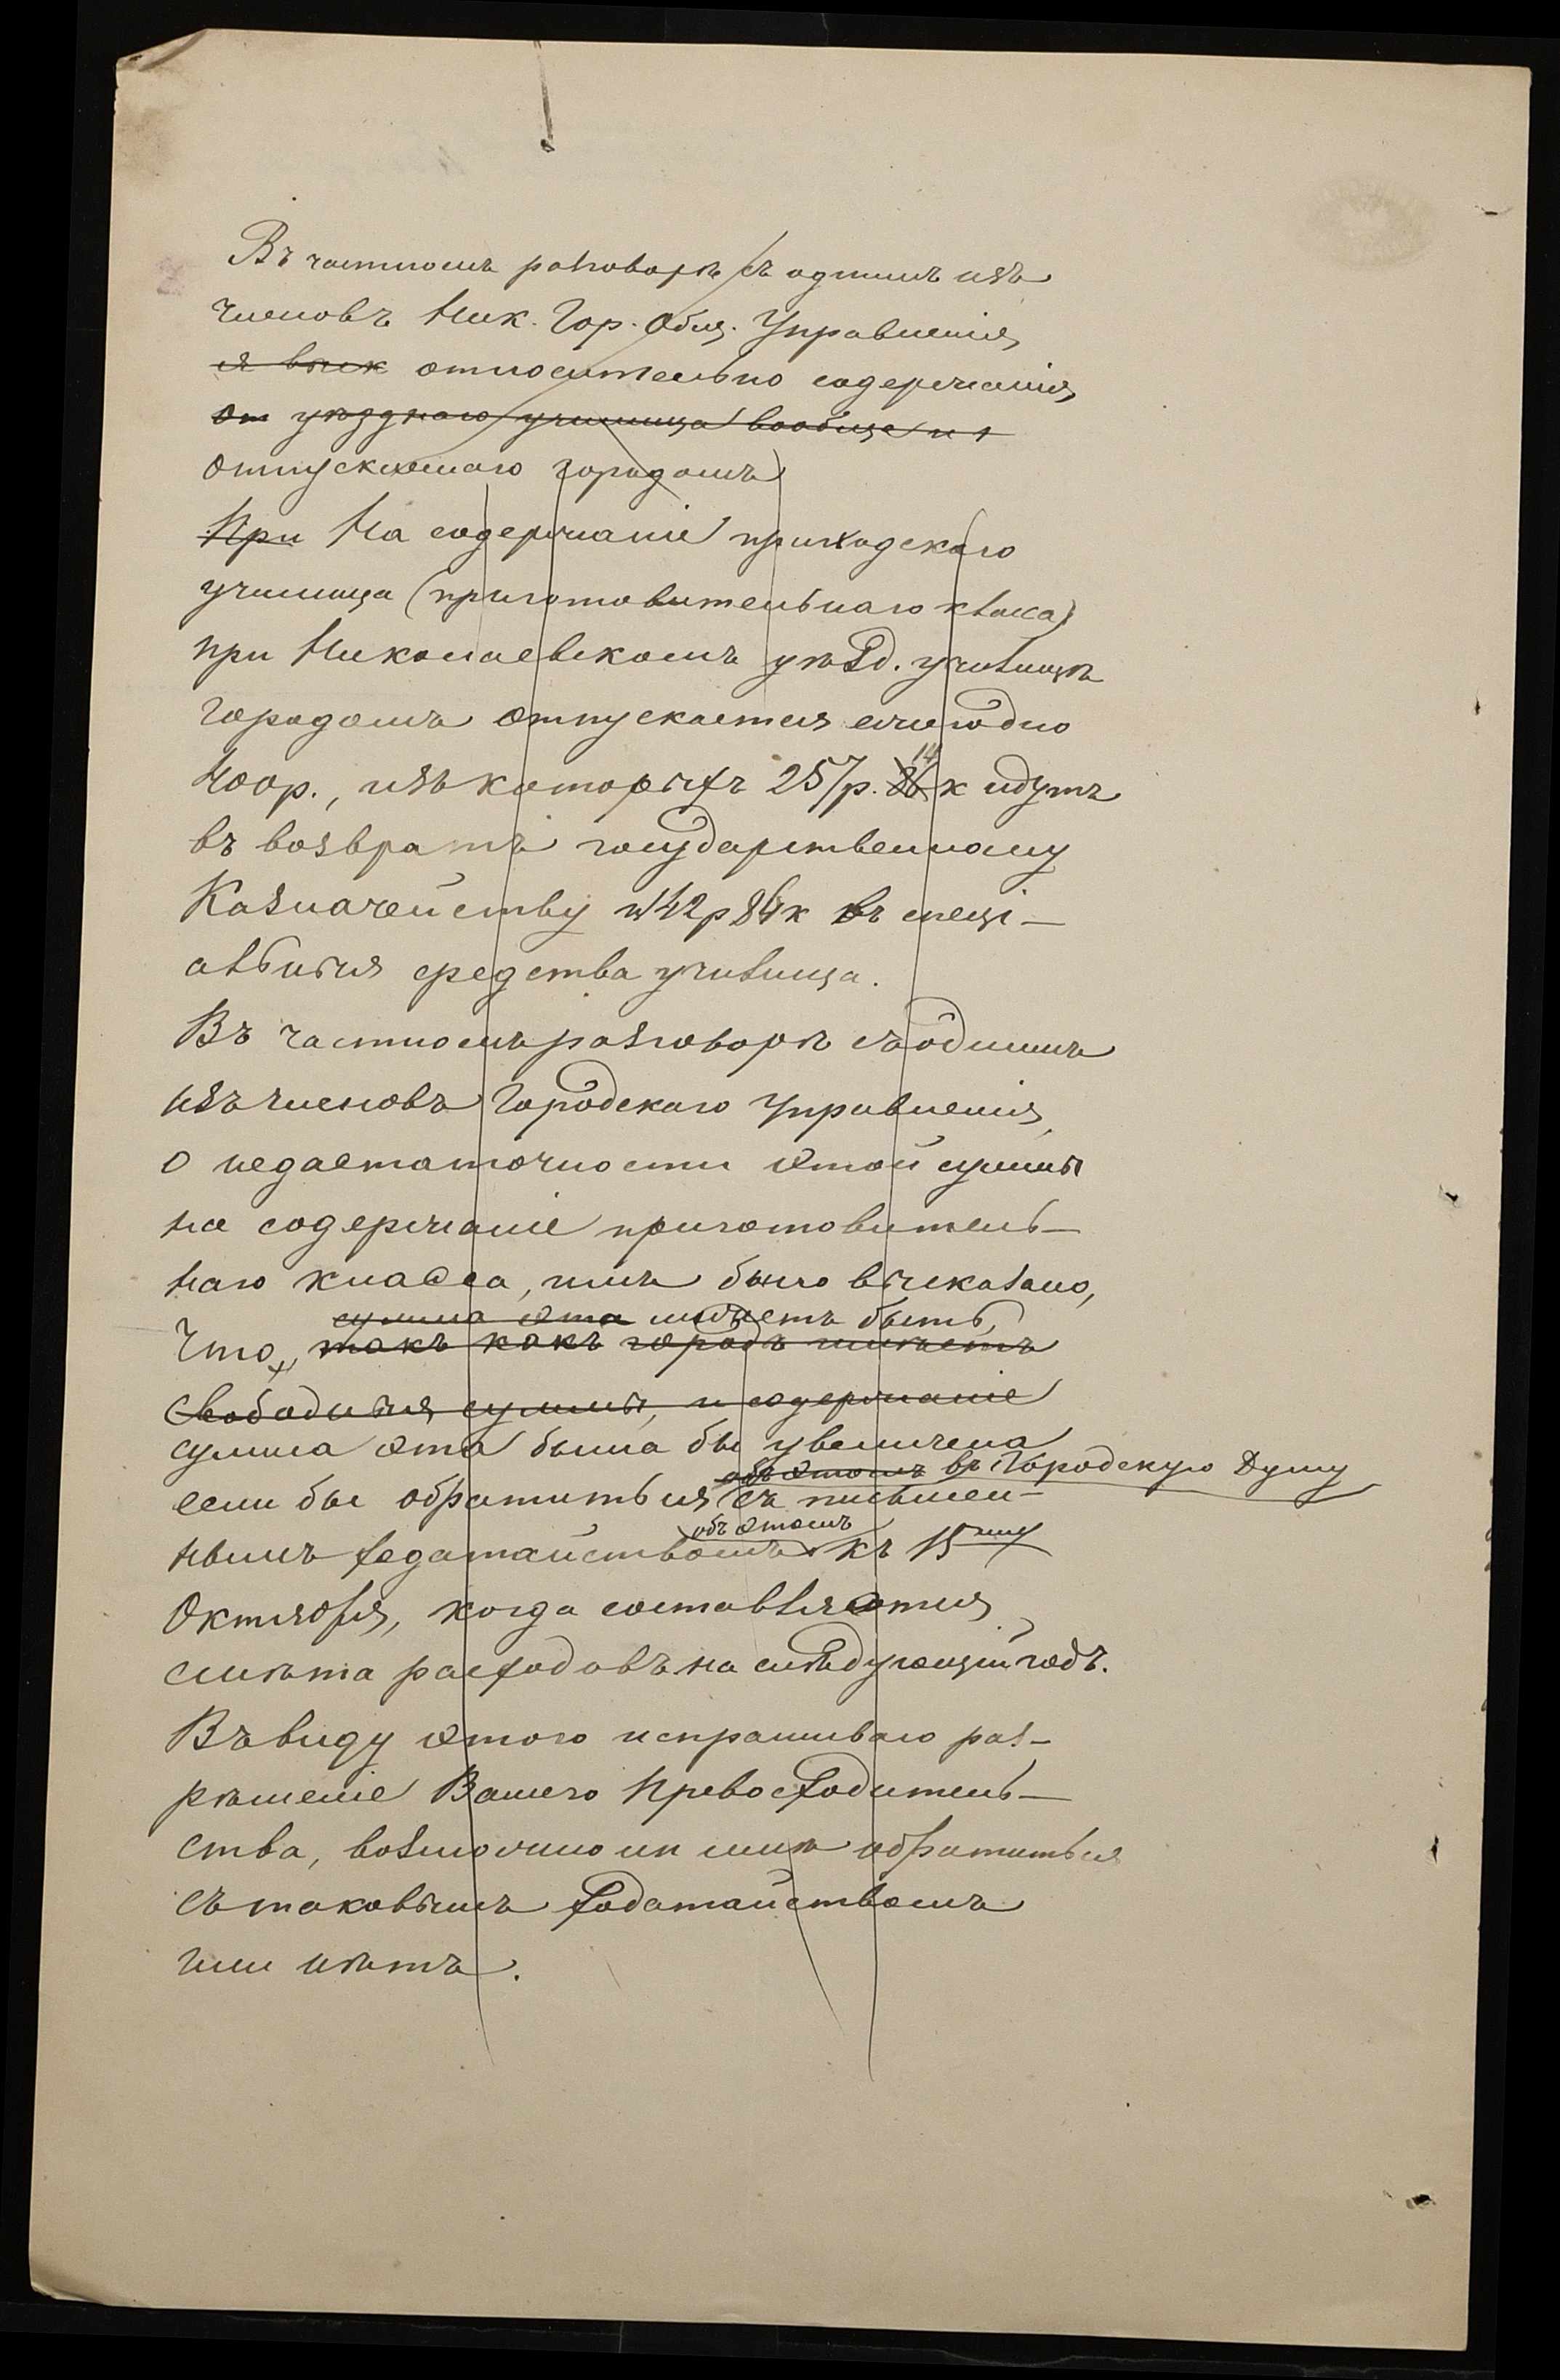 Въ частномъ разговорѣ съ однимъ изъ
членовъ Ник. Гор. Общ. Управленія
я выск относительно содержанія
от уѣзднаго училища вообще и
отпускаемаго городомъ
При На содержаніе приходскаго
училища (приготовительнаго класса)
при Николаевскомъ уѣзд. училищѣ
городомъ отпускается ежегодно
400р., изъ которыхъ 257р. 14 к идутъ
въ возвратъ государственному
Казначейству и 142р 86к въ спеці-
альныя средства училища.
Въ частномъ разговорѣ съ однимъ
изъ членовъ Городскаго Управленія,
о недастаточности этой суммы
на содержаніе приготовитель-
наго класса, имъ было высказано,
сумма эта можетъ быть,
Что, такъ какъ городъ имѣетъ
свободныя суммы, и содержаніе
сумма эта была бы увеличена
объ этомъ въ Городскую Думу
если бы обратиться съ письмен-
объ этомъ
нымъ ходатайствомъ къ 15му
Октября, когда составляется
смѣта расходовъ на слѣдующій годъ.
Въ виду этого испрашиваю раз-
рѣшеніе Вашего Превосходитель-
ства, возможно ли мнѣ обратиться
съ таковымъ ходатайствомъ
или нѣтъ.